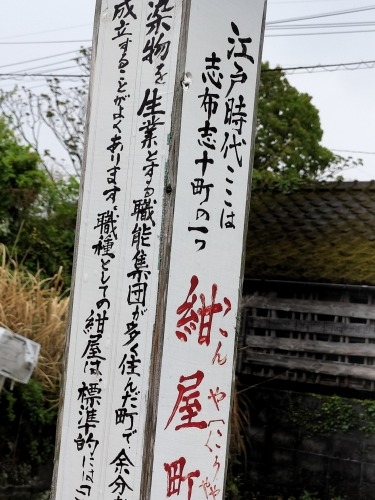 江戸時代ここは
志布志十町の一つ
紺屋町
こんや(くや
染物を生業とする職能集団が多く住んだ町で、余分
成立することがよくあります。職種としての紺屋は、標準的には「